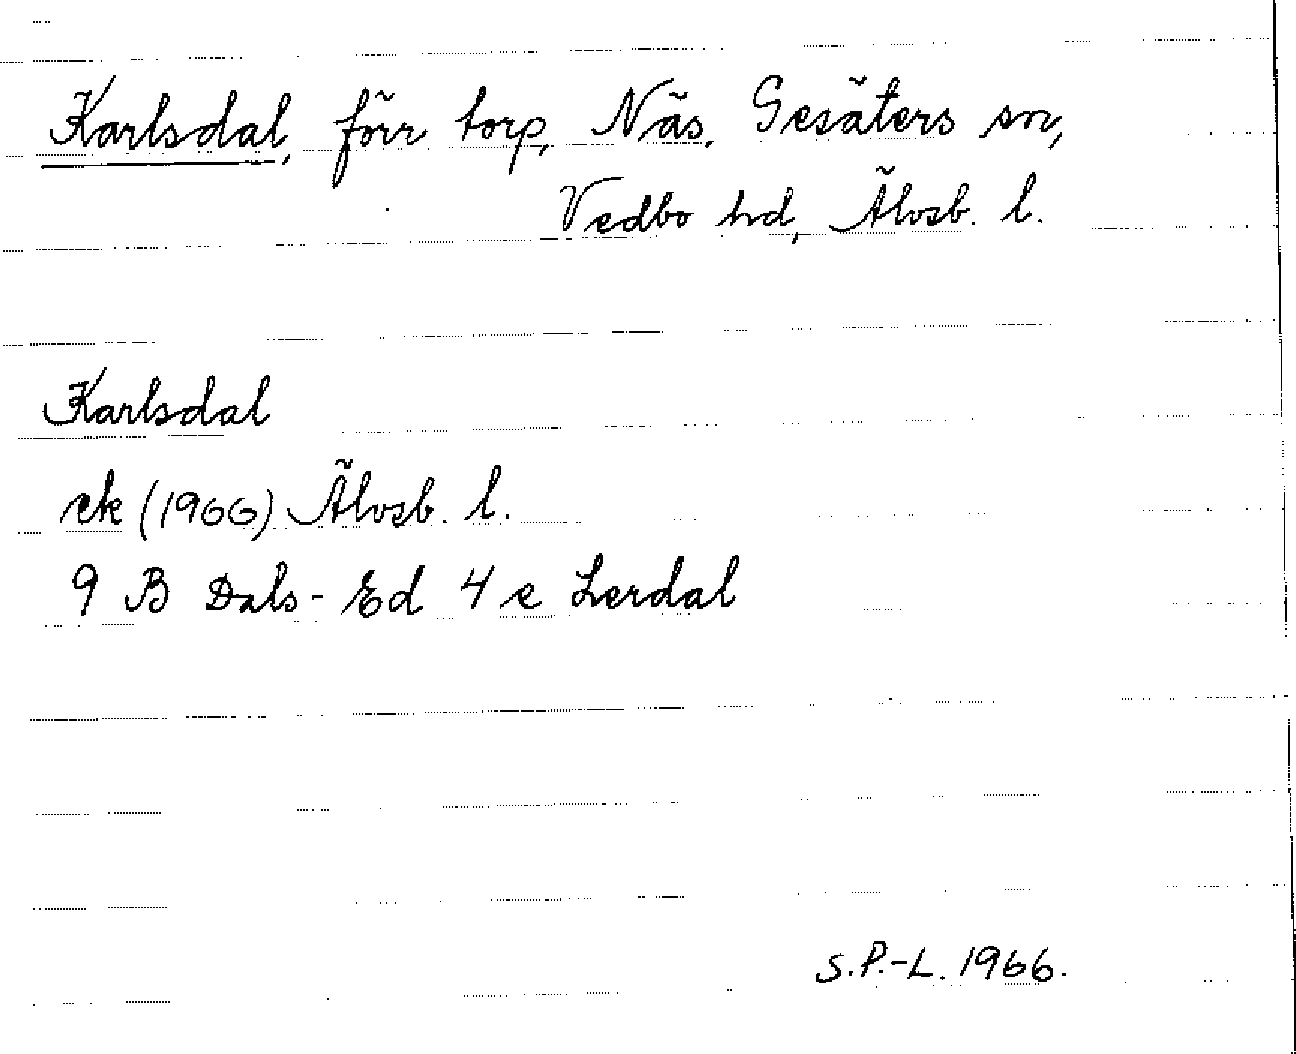 Karlsdal, förr torp, Näs, Gesäters sn,
Vedbo hd, Älvsb. l.
Karlsdal
ek (1966) Älvsb. l.
9 B Dals-Ed 4 e Lerdal
S.P.-L. 1966.